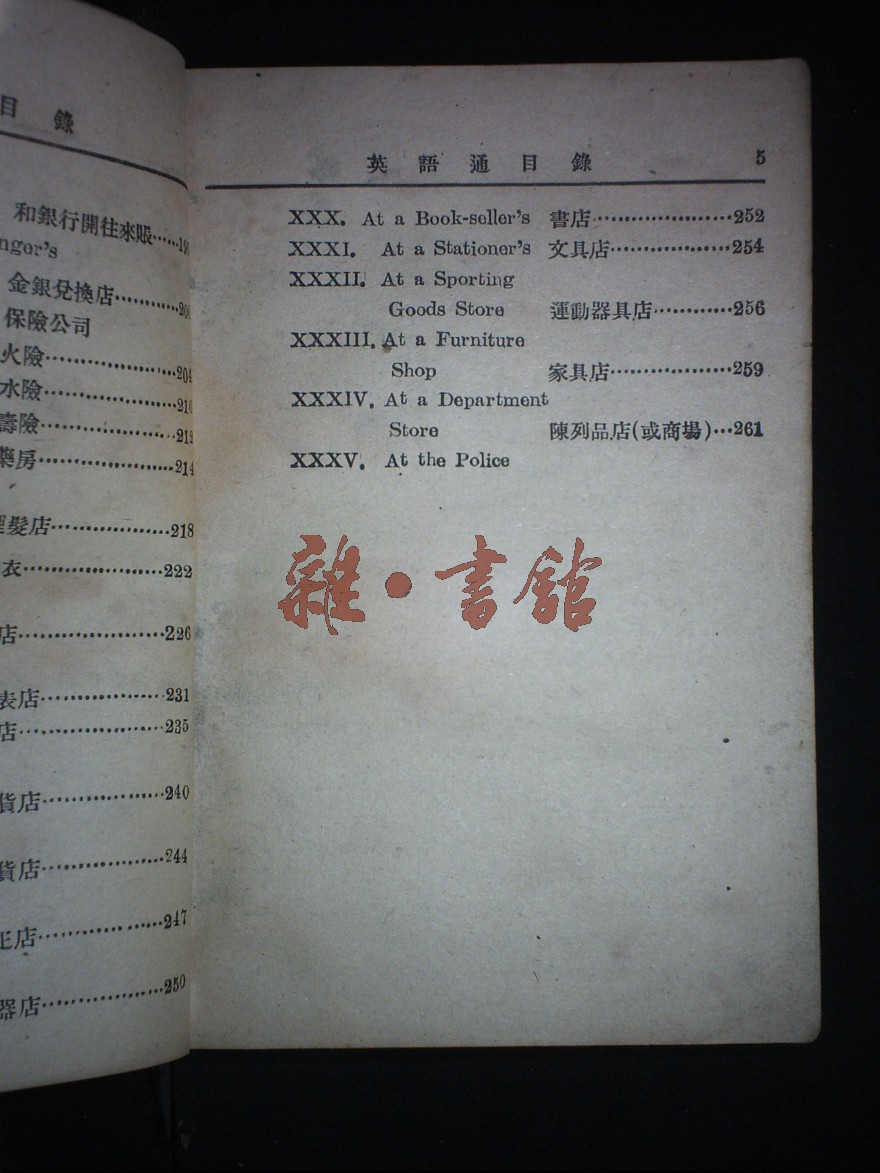 目 錄
和銀行開往來賬……
nger's
金銀兌換店…………200
保險公司
火險………………204
水險………………210
壽險………………212
藥房………………214
髮店………………218
衣…………………222
店…………………226
表店………………231
店…………………235
貨店………………240
貨店………………244
店…………………247
器店………………250
英 語 通 目 錄 5
XXX. At a Book-seller's 書店…………………252
XXXI. At a Stationer's 文具店………………254
XXXII. At a Sporting
Goods Store 運動器具店…………256
XXXIII. At a Furniture
Shop 家具店………………259
XXXIV. At a Department
Store 陳列品店(或商場)…261
XXXV. At the Police
雜·書館